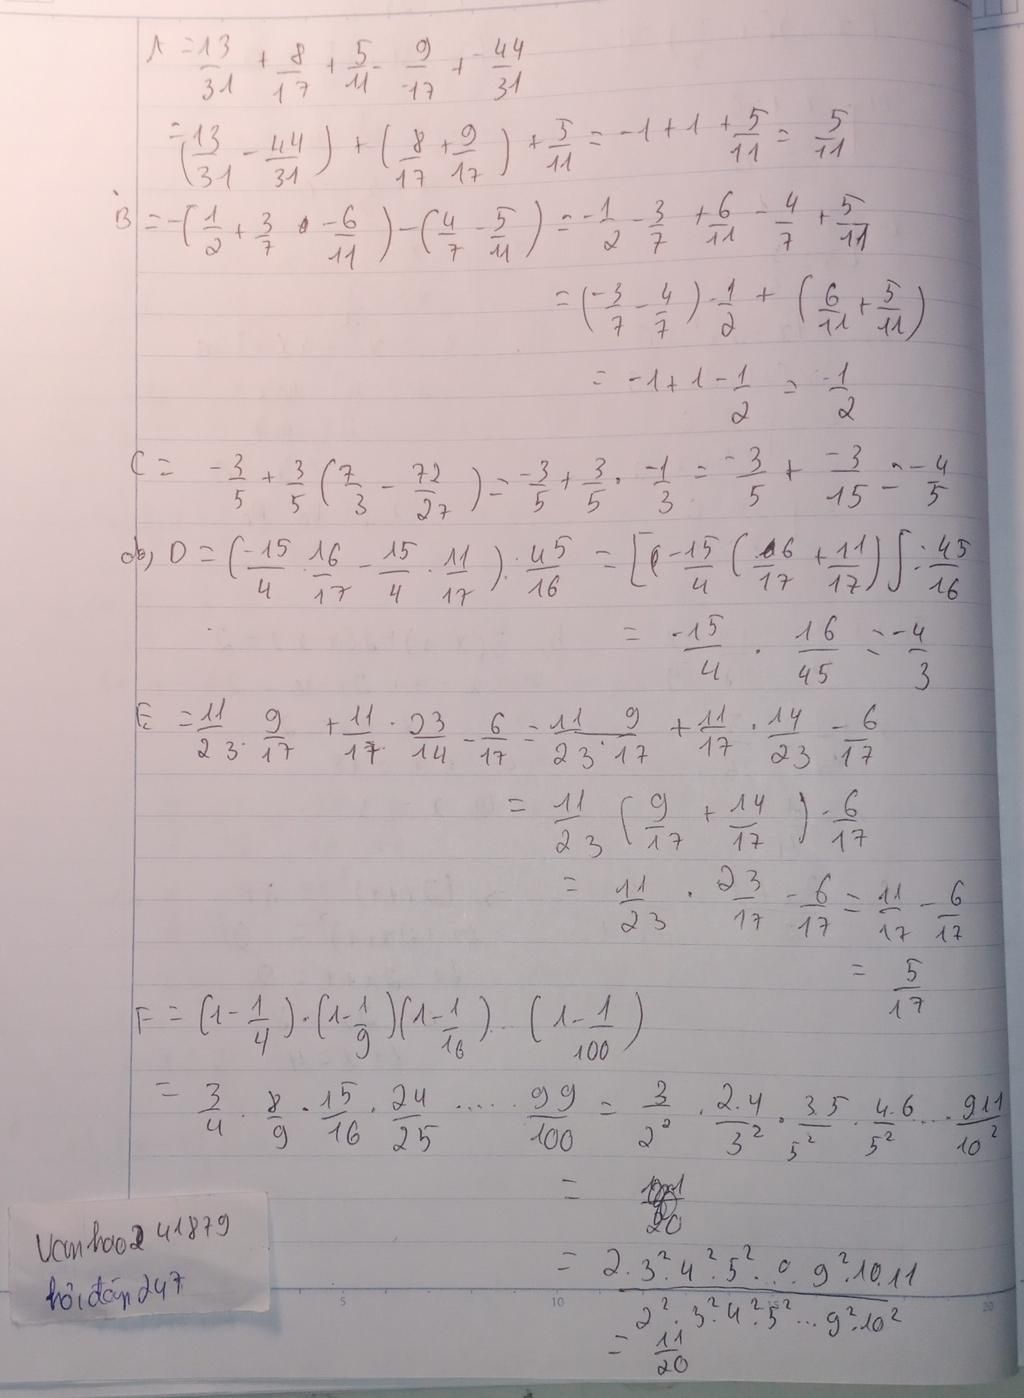 A = 13/31 + 8/17 + 5/11 - 9/-17 + -44/31
= (13/31 - 44/31) + (8/17 + 9/17) + 5/11 = -1 + 1 + 5/11 = 5/11
B = -(1/2 + 3/7 -6/11) - (4/7 - 5/11) = -1/2 - 3/7 + 6/11 - 4/7 + 5/11
= (-3/7 - 4/7) - 1/2 + (6/11 + 5/11)
= -1 + 1 - 1/2 = -1/2
C = -3/5 + 3/5 (7/3 - 72/27) = -3/5 + 3/5 . -1/3 = -3/5 + -3/15 = -4/5
D = (-15/4 . 16/17 - 15/4 . 11/17) : 45/16 = [-15/4 (16/17 + 11/17)] : 45/16
= -15/4 . 16/45 = -4/3
E = 11/23 . 9/17 + 11/17 . 23/14 - 6/17 = 11/23 . 9/17 + 11/17 . 14/23 - 6/17
= 11/23 (9/17 + 14/17) - 6/17
= 11/23 . 23/17 - 6/17 = 11/17 - 6/17
= 5/17
F = (1 - 1/4) . (1 - 1/9) (1 - 1/16) ... (1 - 1/100)
= 3/4 . 8/9 . 15/16 . 24/25 ..... 99/100 = 3/2² . 2.4/3² . 3.5/5² . 4.6/5² ... 9.11/10²
=
= 2.3².4².5²...9².10.11 / 2².3².4².5²...9².10²
= 11/20
vanhao241879
hỏi đáp 247
5 10 15 20